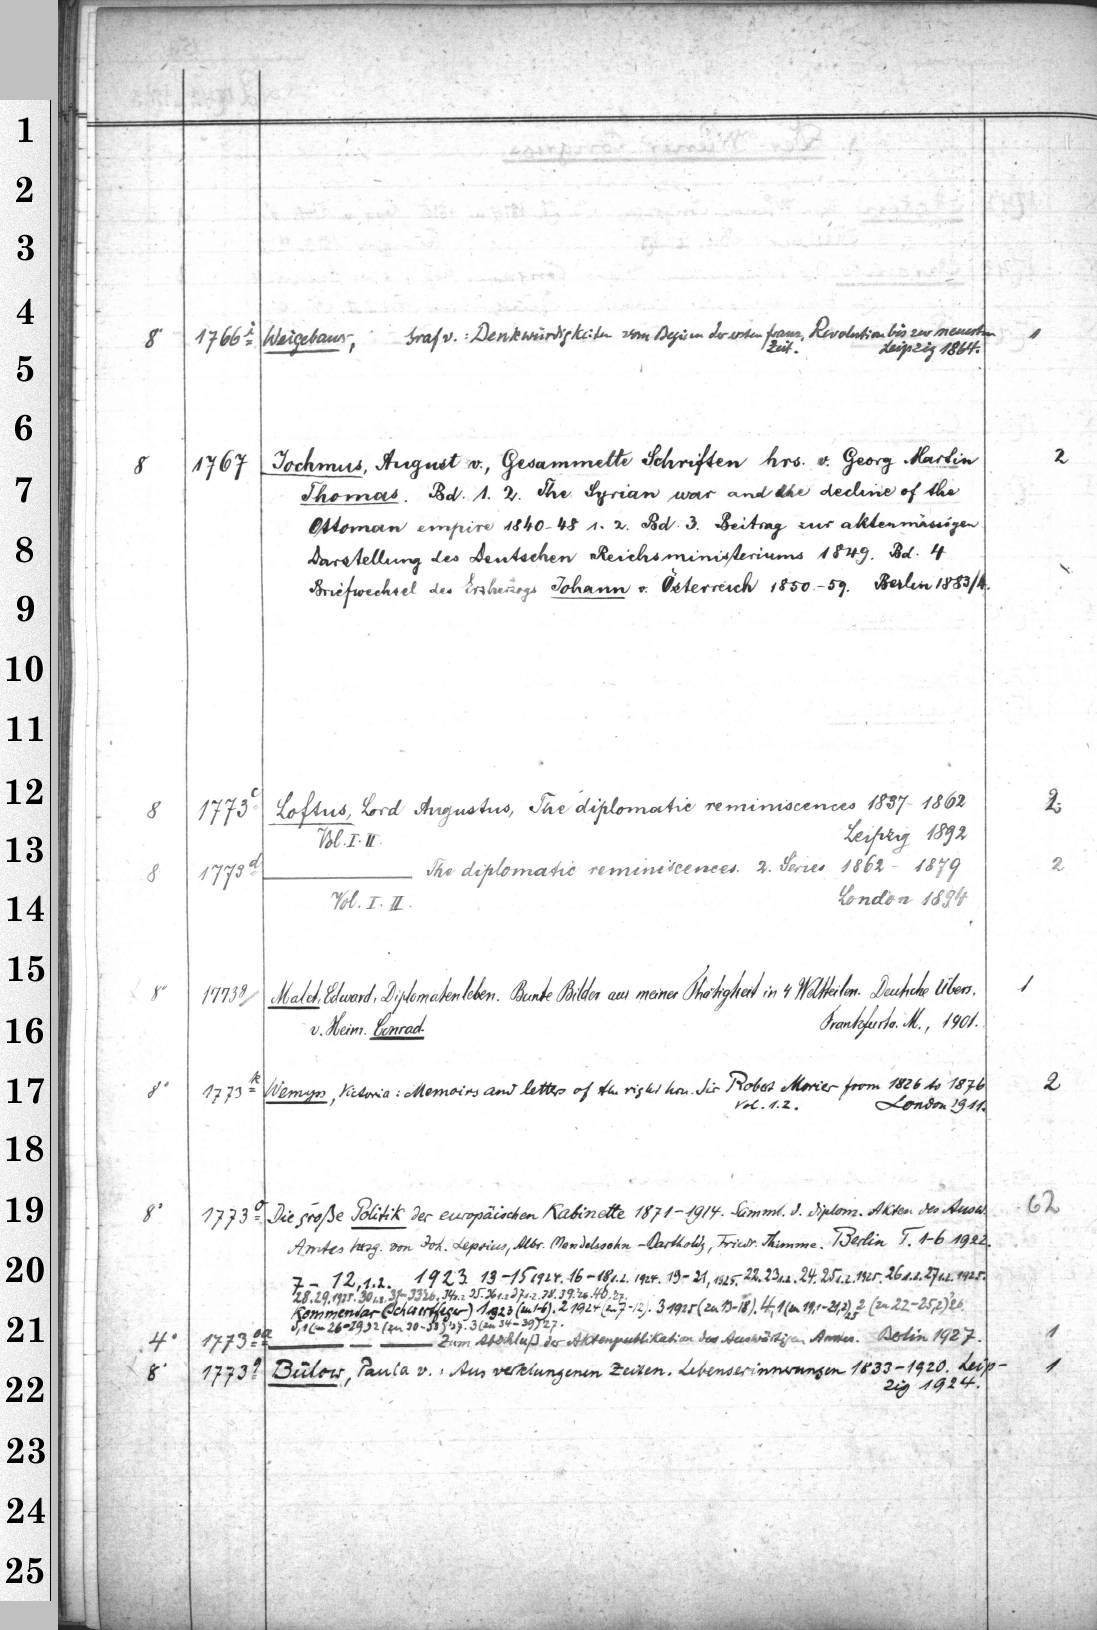 1
2
3
4
8° 1766 i Weigebaur, Graf v.: Denkwürdigkeiten vom Beginn der ersten franz. Revolution bis zur neuesten 1
Zeit. Leipzig 1864.
5
6
8 1767 Jochmus, August v., Gesammelte Schriften hrs. v. Georg Martin 2
7
Thomas. Bd. 1. 2. The Syrian war and the decline of the
Ottoman empire 1840-48 1. 2. Bd. 3. Beitrag zur aktenmässigen
8
Darstellung des Deutschen Reichsministeriums 1849. Bd. 4
Briefwechsel des Erzherzogs Johann v. Österreich 1850-59. Berlin 1883/4.
9
10
11
12
8 1773 c Loftus, Lord Augustus, The diplomatic reminiscences 1837-1862 2
Vol. I. II. Leipzig 1892
13
8 1773 d The diplomatic reminiscences. 2. Series 1862-1879 2
Vol. I. II. London 1894
14
15
8° 1773 g Malet, Edward, Diplomatenleben. Bunte Bilder aus meiner Thätigkeit in 4 Weltteilen. Deutsche Übers. 1
v. Heinr. Conrad. Frankfurt a. M., 1901.
16
17
8° 1773 k Wemyss, Victoria: Memoirs and letters of the right hon. Sir Robert Morier from 1826 to 1876 2
Vol. 1.2. London 1911.
18
19
8° 1773 o Die große Politik der europäischen Kabinette 1871-1914. Samml. d. diplom. Akten des Ausw. 62
Amtes hrsg. von Joh. Lepsius, Albr. Mendelssohn-Bartholdy, Friedr. Thimme. Berlin T. 1-6 1922.
20
7-12,1.2. 1923 13-15 1924. 16-18 1.2. 1924. 19-21, 1925. 22.23 1.2. 24. 25 1.2. 1925. 26 1.2. 27 1.2. 1925.
Kommentar (Schwertfeger) 1 1923 (zu 1-6). 2 1924 (zu 7-12). 3 1925 (zu 13-18).
21
4° 1773 oa Zum Abschluß der Aktenpublikation des Auswärtigen Amtes. Berlin 1927. 1
8° 1773 q Bülow, Paula v.: Aus verklungenen Zeiten. Lebenserinnerungen 1833-1920. Leip- 1
zig 1924.
22
23
24
25